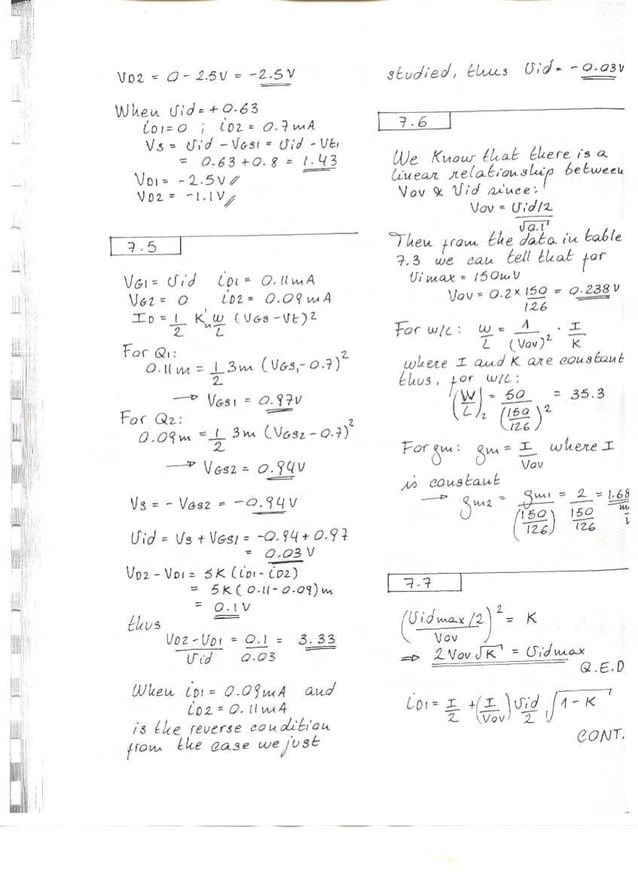 VD2 = 0 - 2.5V = -2.5V
When Uid = +0.63
iD1=0 ; iD2 = 0.7mA
Vs = Uid - VGS1 = Uid - Vt1
= 0.63+0.8 = 1.43
VD1 = -2.5V //
VD2 = -1.1V //
7.5
VG1 = Uid iD1 = 0.11mA
VG2 = 0 , iD2 = 0.09mA
ID = 1/2 K'n W/L (VGS-Vt)2
For Q1:
0.11m = 1/2 3m (VGS1-0.7)2
→ VGS1 = 0.97V
For Q2:
0.09m = 1/2 3m (VGS2-0.7)2
→ VGS2 = 0.94V
Vs = - VGS2 = -0.94V
Uid = Vs + VGS1 = -0.94+0.97
= 0.03V
VD2 - VD1 = 5K (iD1 - iD2)
= 5K (0.11 - 0.09)m
= 0.1V
thus
VD2 - VD1 / Uid = 0.1 / 0.03 = 3.33
When iD1 = 0.09mA and
iD2 = 0.11mA
is the reverse condition
from the case we just
studied, thus Uid = -0.03V
7.6
We Know that there is a
linear relationship between
Vov & Uid since:
Vov = Uid/2 / √0.1
Then from the data in table
7.3 we can tell that for
Uimax = 150mV
Vov = 0.2 × 150/126 = 0.238V
For W/L: W/L = 1/(Vov)2 · I/K
where I and K are constant
thus, for W/L:
(W/L)2 = 50 / (150/126)2 = 35.3
For gm: gm = I/Vov where I
is constant
→ gm2 = gm1 / (150/126) = 2 / 150/126 = 1.68
7.7
(Uidmax/2 / Vov)2 = K
⇒ 2Vov√K = Uidmax
Q.E.D
iD1 = I/2 + (I/Vov) Uid/2 √1-K
CONT.